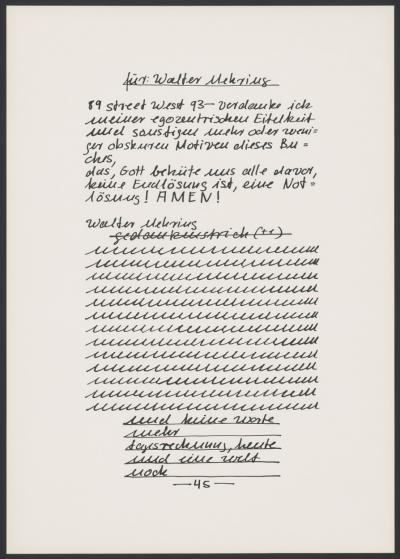 für: Walter Mehring
89 street West 93 — verdanke ich
meiner egozentrischen Eitelkeit
und sonstigen mehr oder weni=
ger obskuren Motiven dieses Bu=
ches,
das, Gott behüte uns alle davor,
keine Endlösung ist, eine Not=
lösung! AMEN!
Walter Mehring
gedankenstrich (++)
und keine worte
mehr
tagsrechnung, heute
und eine welt
noch
— 45 —